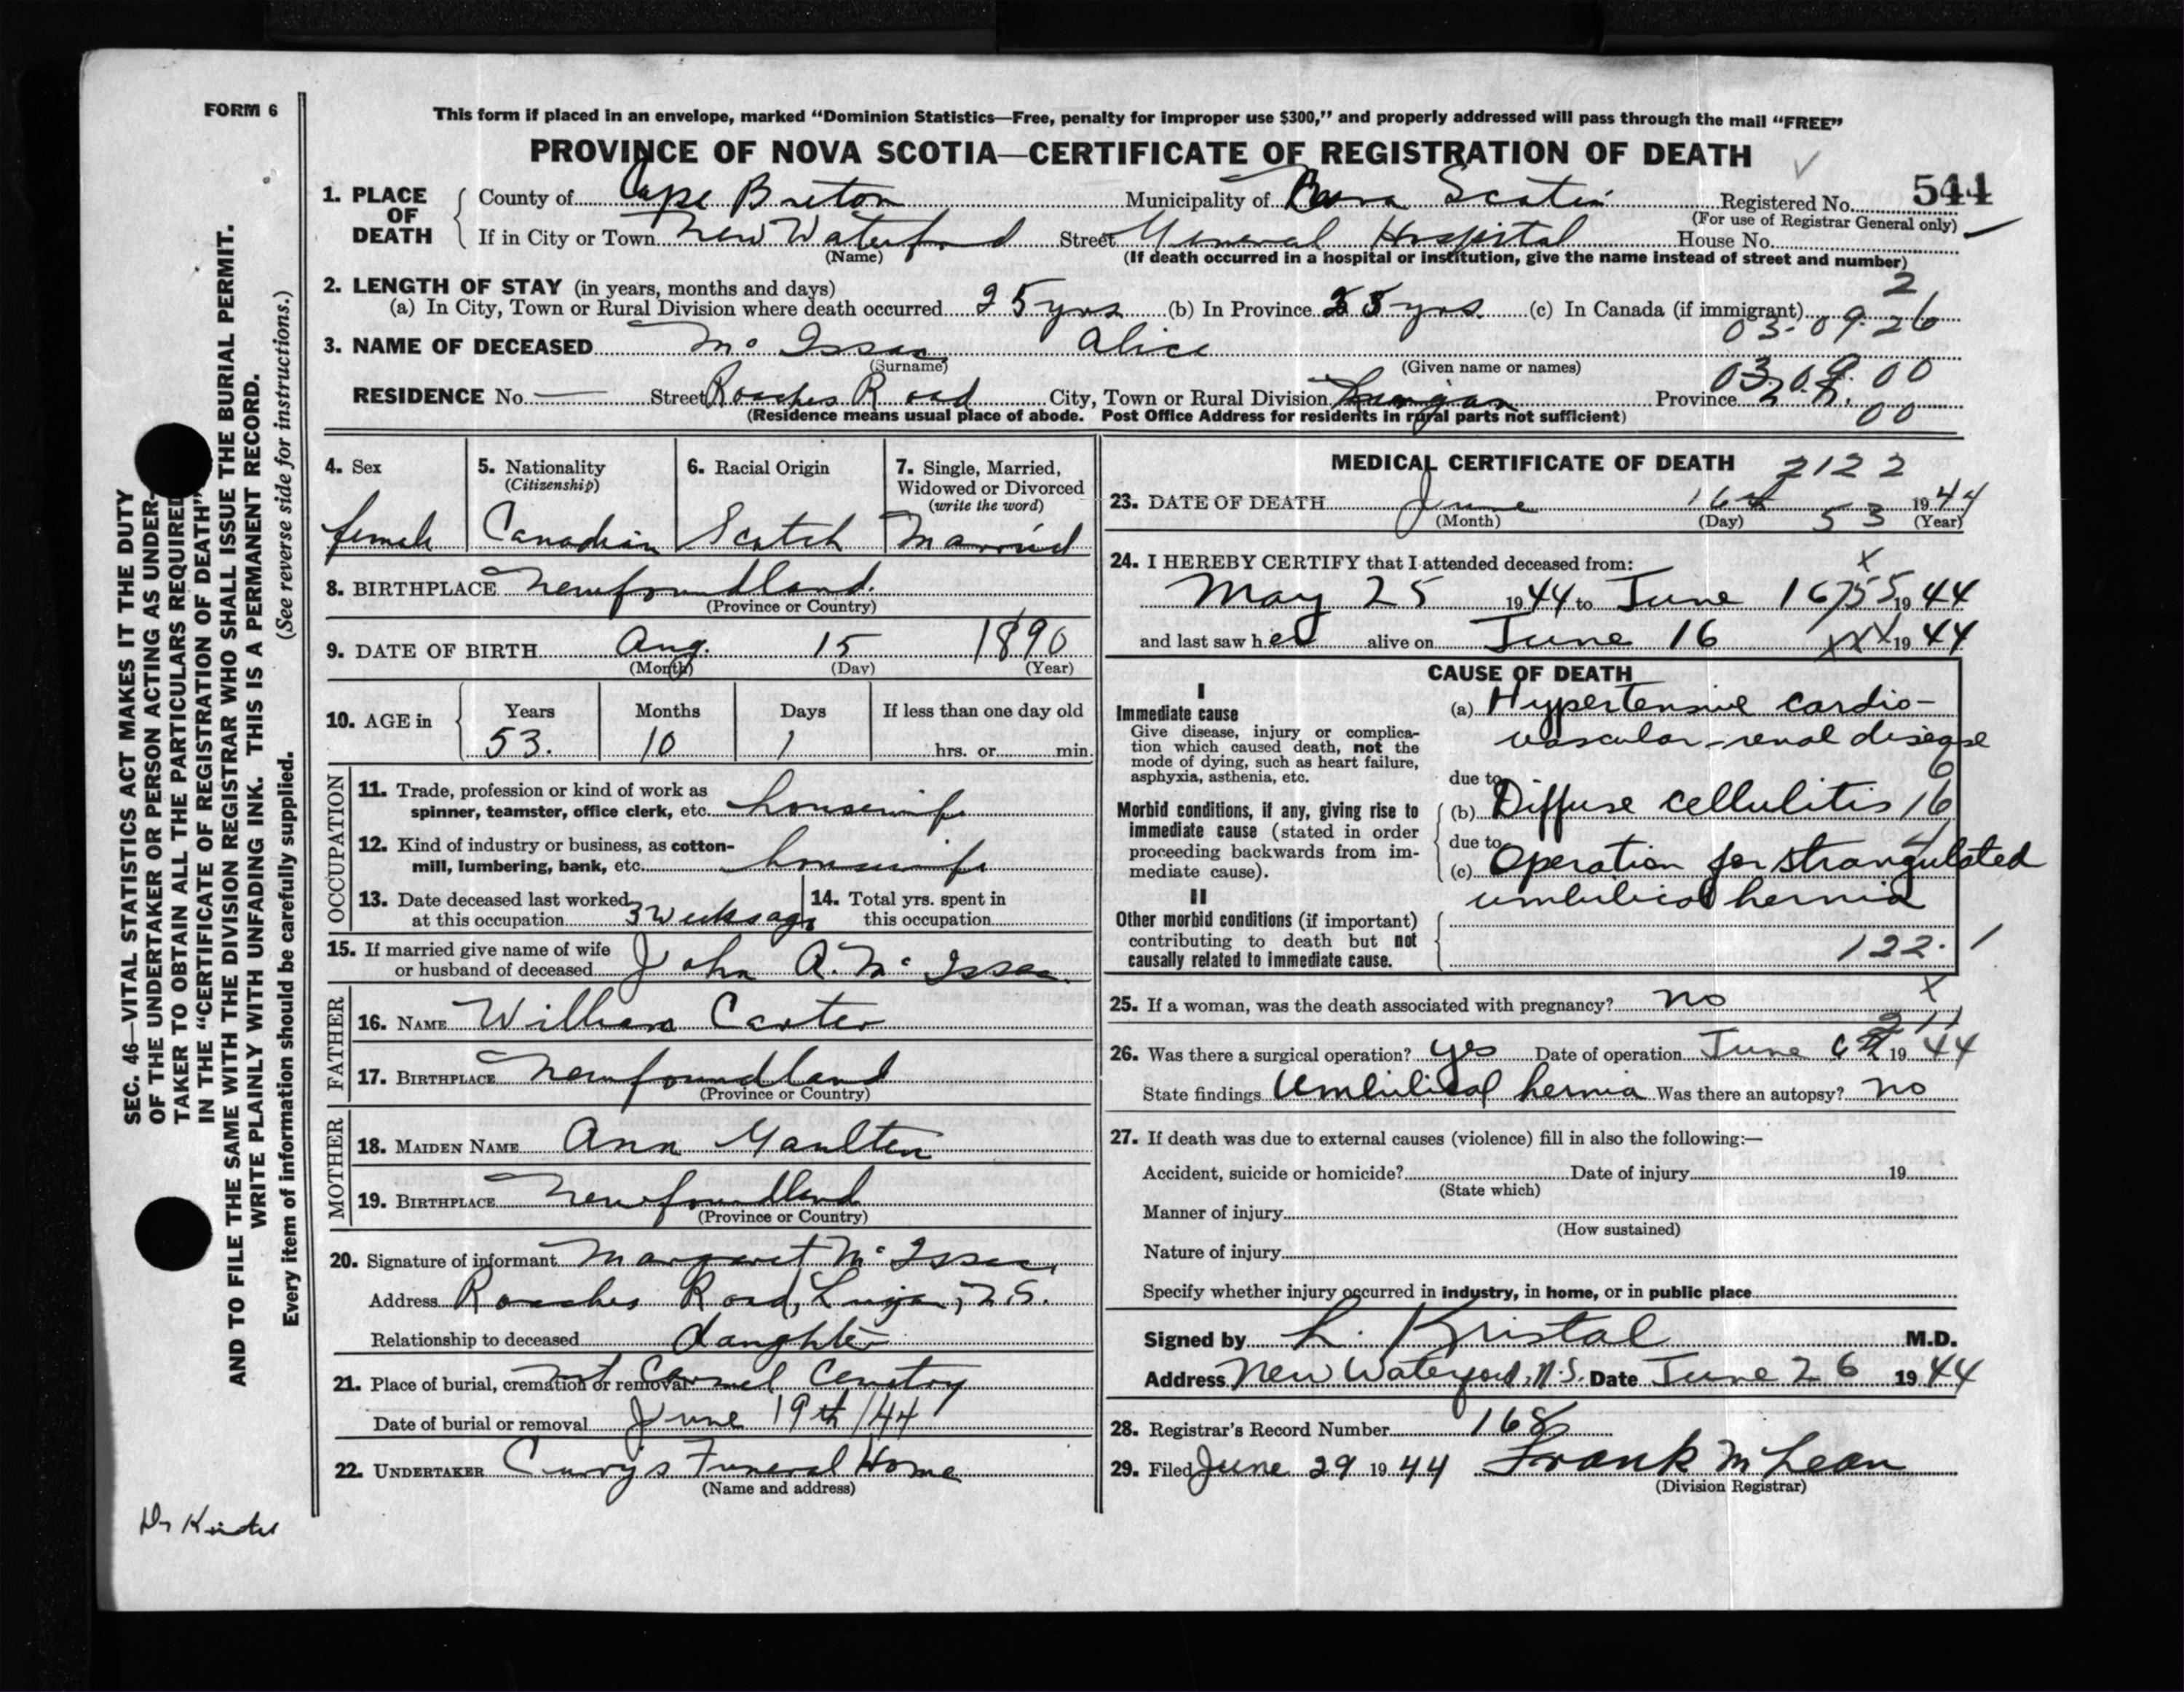 FORM 6
This form if placed in an envelope, marked “Dominion Statistics—Free, penalty for improper use $300,” and properly addressed will pass through the mail “FREE”
PROVINCE OF NOVA SCOTIA—CERTIFICATE OF REGISTRATION OF DEATH
544
1. PLACE OF DEATH County of Cape Breton Municipality of Nova Scotia Registered No.
(For use of Registrar General only)
If in City or Town New Waterford Street General Hospital House No.
(Name) (If death occurred in a hospital or institution, give the name instead of street and number)
2. LENGTH OF STAY (in years, months and days) 2
(a) In City, Town or Rural Division where death occurred 25 yrs (b) In Province 25 yrs. (c) In Canada (if immigrant)
03-09-26
3. NAME OF DECEASED Mc Issac Alice
(Surname) (Given name or names)
03.09.00
RESIDENCE No. — Street Roaches Road City, Town or Rural Division Lingan Province n.s.
00
(Residence means usual place of abode. Post Office Address for residents in rural parts not sufficient)
4. Sex 5. Nationality (Citizenship) 6. Racial Origin 7. Single, Married, Widowed or Divorced (write the word)
female Canadian Scotch Married
8. BIRTHPLACE Newfoundland.
(Province or Country)
9. DATE OF BIRTH Aug. 15 1890
(Month) (Day) (Year)
10. AGE in Years Months Days If less than one day old
53. 10 1 hrs. or min.
OCCUPATION
11. Trade, profession or kind of work as
spinner, teamster, office clerk, etc. housewife
12. Kind of industry or business, as cotton-
mill, lumbering, bank, etc. housewife
13. Date deceased last worked 14. Total yrs. spent in
at this occupation 3 weeks ago this occupation
15. If married give name of wife
or husband of deceased John A. Mc Issac
FATHER
16. NAME William Carter
17. BIRTHPLACE Newfoundland
(Province or Country)
MOTHER
18. MAIDEN NAME Ann Gaulten
19. BIRTHPLACE Newfoundland
(Province or Country)
20. Signature of informant Margaret Mc Issac
Address Roaches Road, Lingan, N.S.
Relationship to deceased daughter
21. Place of burial, cremation or removal Mt Carmel Cemetry
Date of burial or removal June 19th/44
22. UNDERTAKER Curry's Funeral Home
(Name and address)
MEDICAL CERTIFICATE OF DEATH 2122
23. DATE OF DEATH June 16th 1944
(Month) (Day) 53 (Year)
24. I HEREBY CERTIFY that I attended deceased from: x
May 25 1944 to June 16 755 1944
and last saw her alive on June 16 xxx 1944
CAUSE OF DEATH
I
Immediate cause
Give disease, injury or complica-
tion which caused death, not the
mode of dying, such as heart failure,
asphyxia, asthenia, etc.
(a) Hypertensive cardio-
vascular-renal disease
due to 6
Morbid conditions, if any, giving rise to
immediate cause (stated in order
proceeding backwards from im-
mediate cause).
(b) Diffuse cellulitis 16
due to
(c) Operation for strangulated
umbilical hernia
II
Other morbid conditions (if important)
contributing to death but not
causally related to immediate cause.
122.1
25. If a woman, was the death associated with pregnancy? no x
26. Was there a surgical operation? yes Date of operation June 1944
State findings Umbilical hernia Was there an autopsy? no
27. If death was due to external causes (violence) fill in also the following:—
Accident, suicide or homicide? Date of injury 19
(State which)
Manner of injury
(How sustained)
Nature of injury
Specify whether injury occurred in industry, in home, or in public place
Signed by L. Kristal M.D.
Address New Waterford, N.S. Date June 26 1944
28. Registrar's Record Number 168
29. Filed June 29 1944 Frank McLean
(Division Registrar)
SEC. 46—VITAL STATISTICS ACT MAKES IT THE DUTY
OF THE UNDERTAKER OR PERSON ACTING AS UNDER-
TAKER TO OBTAIN ALL THE PARTICULARS REQUIRED
IN THE “CERTIFICATE OF REGISTRATION OF DEATH”
AND TO FILE THE SAME WITH THE DIVISION REGISTRAR WHO SHALL ISSUE THE BURIAL PERMIT.
WRITE PLAINLY WITH UNFADING INK. THIS IS A PERMANENT RECORD.
(See reverse side for instructions.)
Every item of information should be carefully supplied.